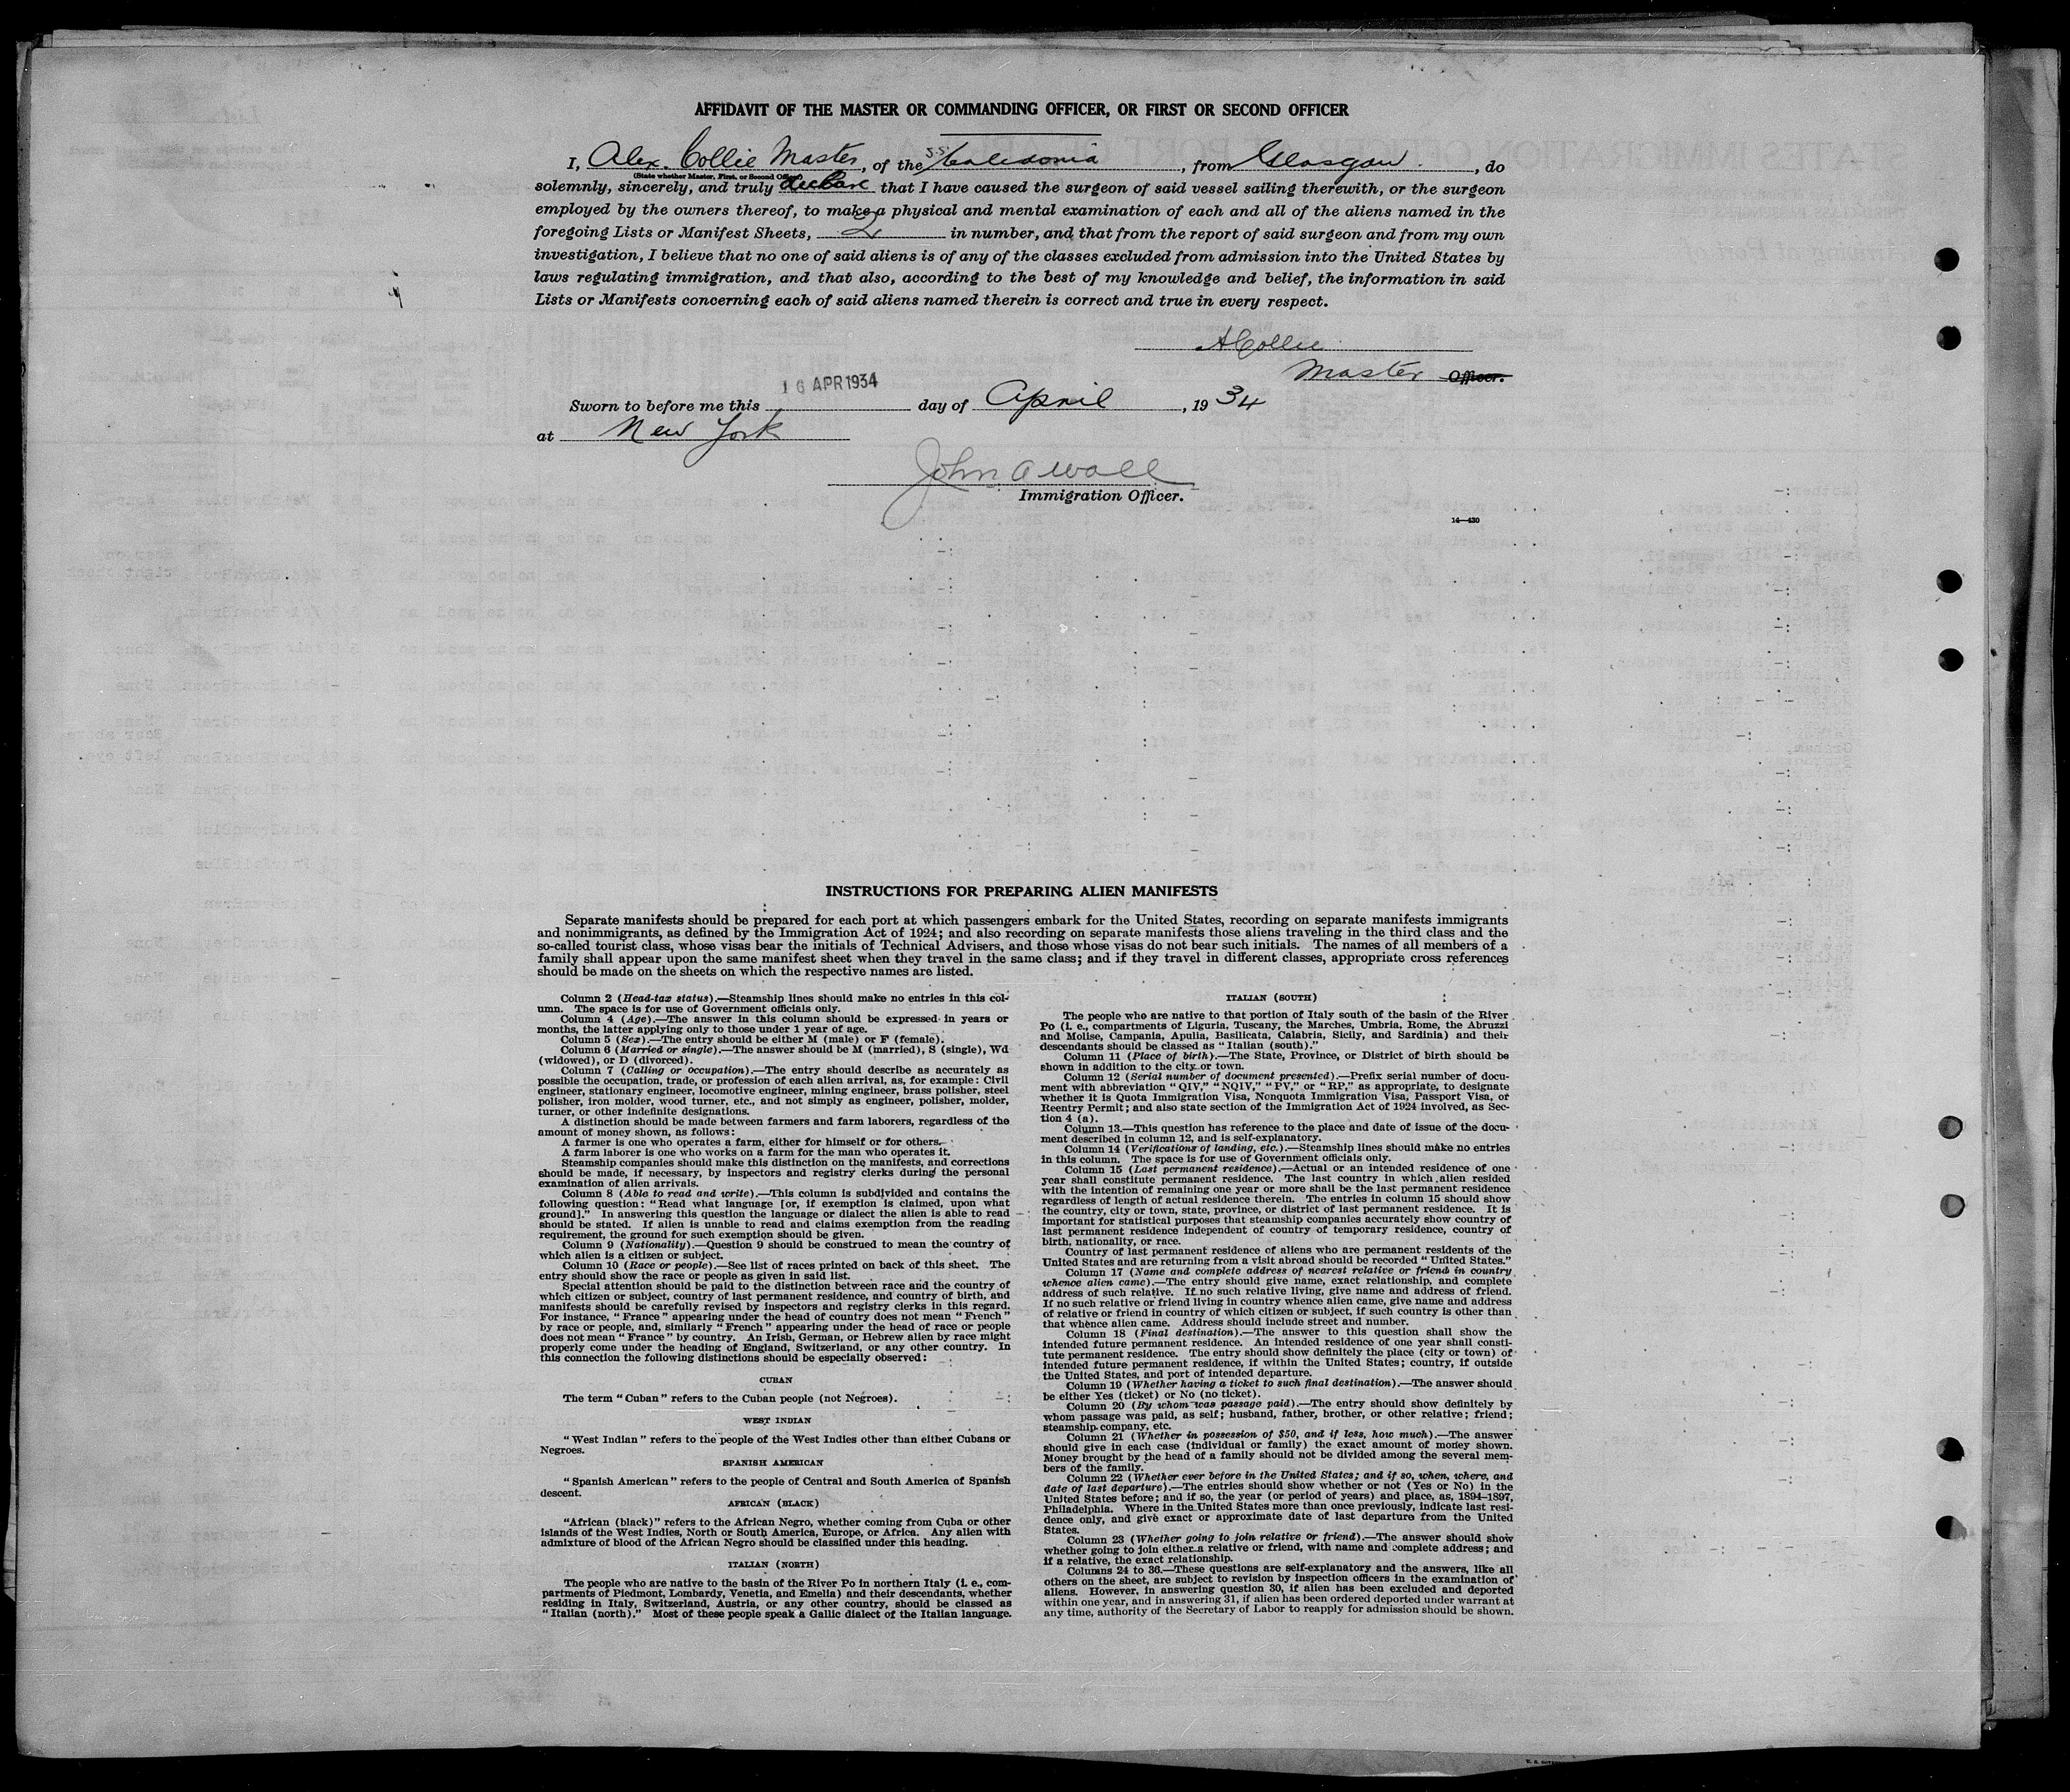 AFFIDAVIT OF THE MASTER OR COMMANDING OFFICER, OR FIRST OR SECOND OFFICER
I, Alex. Collie Master, of the S.S. Caledonia, from Glasgow., do
(State whether Master, First, or Second Officer)
solemnly, sincerely, and truly declare that I have caused the surgeon of said vessel sailing therewith, or the surgeon
employed by the owners thereof, to make a physical and mental examination of each and all of the aliens named in the
foregoing Lists or Manifest Sheets, 2 in number, and that from the report of said surgeon and from my own
investigation, I believe that no one of said aliens is of any of the classes excluded from admission into the United States by
laws regulating immigration, and that also, according to the best of my knowledge and belief, the information in said
Lists or Manifests concerning each of said aliens named therein is correct and true in every respect.
A Collie
Master Officer.
16 APR 1934
Sworn to before me this day of April, 1934
at New York
John A Wall
Immigration Officer.
14—430
INSTRUCTIONS FOR PREPARING ALIEN MANIFESTS
Separate manifests should be prepared for each port at which passengers embark for the United States, recording on separate manifests immigrants
and nonimmigrants, as defined by the Immigration Act of 1924; and also recording on separate manifests those aliens traveling in the third class and the
so-called tourist class, whose visas bear the initials of Technical Advisers, and those whose visas do not bear such initials. The names of all members of a
family shall appear upon the same manifest sheet when they travel in the same class; and if they travel in different classes, appropriate cross references
should be made on the sheets on which the respective names are listed.
Column 2 (Head-tax status).—Steamship lines should make no entries in this col-
umn. The space is for use of Government officials only.
Column 4 (Age).—The answer in this column should be expressed in years or
months, the latter applying only to those under 1 year of age.
Column 5 (Sex).—The entry should be either M (male) or F (female).
Column 6 (Married or single).—The answer should be M (married), S (single), Wd
(widowed), or D (divorced).
Column 7 (Calling or occupation).—The entry should describe as accurately as
possible the occupation, trade, or profession of each alien arrival, as, for example: Civil
engineer, stationary engineer, locomotive engineer, mining engineer, brass polisher, steel
polisher, iron molder, wood turner, etc., and not simply as engineer, polisher, molder,
turner, or other indefinite designations.
A distinction should be made between farmers and farm laborers, regardless of the
amount of money shown, as follows:
A farmer is one who operates a farm, either for himself or for others.
A farm laborer is one who works on a farm for the man who operates it.
Steamship companies should make this distinction on the manifests, and corrections
should be made, if necessary, by inspectors and registry clerks during the personal
examination of alien arrivals.
Column 8 (Able to read and write).—This column is subdivided and contains the
following question: "Read what language [or, if exemption is claimed, upon what
ground]." In answering this question the language or dialect the alien is able to read
should be stated. If alien is unable to read and claims exemption from the reading
requirement, the ground for such exemption should be given.
Column 9 (Nationality).—Question 9 should be construed to mean the country of
which alien is a citizen or subject.
Column 10 (Race or people).—See list of races printed on back of this sheet. The
entry should show the race or people as given in said list.
Special attention should be paid to the distinction between race and the country of
which citizen or subject, country of last permanent residence, and country of birth, and
manifests should be carefully revised by inspectors and registry clerks in this regard.
For instance, "France" appearing under the head of country does not mean "French"
by race or people, and, similarly "French" appearing under the head of race or people
does not mean "France" by country. An Irish, German, or Hebrew alien by race might
properly come under the heading of England, Switzerland, or any other country. In
this connection the following distinctions should be especially observed:
CUBAN
The term "Cuban" refers to the Cuban people (not Negroes).
WEST INDIAN
"West Indian" refers to the people of the West Indies other than either Cubans or
Negroes.
SPANISH AMERICAN
"Spanish American" refers to the people of Central and South America of Spanish
descent.
AFRICAN (BLACK)
"African (black)" refers to the African Negro, whether coming from Cuba or other
islands of the West Indies, North or South America, Europe, or Africa. Any alien with
admixture of blood of the African Negro should be classified under this heading.
ITALIAN (NORTH)
The people who are native to the basin of the River Po in northern Italy (i. e., com-
partments of Piedmont, Lombardy, Venetia, and Emelia) and their descendants, whether
residing in Italy, Switzerland, Austria, or any other country, should be classed as
"Italian (north)." Most of these people speak a Gallic dialect of the Italian language.
ITALIAN (SOUTH)
The people who are native to that portion of Italy south of the basin of the River
Po (i. e., compartments of Liguria, Tuscany, the Marches, Umbria, Rome, the Abruzzi
and Molise, Campania, Apulia, Basilicata, Calabria, Sicily, and Sardinia) and their
descendants should be classed as "Italian (south)."
Column 11 (Place of birth).—The State, Province, or District of birth should be
shown in addition to the city or town.
Column 12 (Serial number of document presented).—Prefix serial number of docu-
ment with abbreviation "QIV," "NQIV," "PV," or "RP," as appropriate, to designate
whether it is Quota Immigration Visa, Nonquota Immigration Visa, Passport Visa, or
Reentry Permit; and also state section of the Immigration Act of 1924 involved, as Sec-
tion 4 (a).
Column 13.—This question has reference to the place and date of issue of the docu-
ment described in column 12, and is self-explanatory.
Column 14 (Verifications of landing, etc.).—Steamship lines should make no entries
in this column. The space is for use of Government officials only.
Column 15 (Last permanent residence).—Actual or an intended residence of one
year shall constitute permanent residence. The last country in which alien resided
with the intention of remaining one year or more shall be the last permanent residence
regardless of length of actual residence therein. The entries in column 15 should show
the country, city or town, state, province, or district of last permanent residence. It is
important for statistical purposes that steamship companies accurately show country of
last permanent residence independent of country of temporary residence, country of
birth, nationality, or race.
Country of last permanent residence of aliens who are permanent residents of the
United States and are returning from a visit abroad should be recorded "United States."
Column 17 (Name and complete address of nearest relative or friend in country
whence alien came).—The entry should give name, exact relationship, and complete
address of such relative. If no such relative living, give name and address of friend.
If no such relative or friend living in country whence alien came, give name and address
of relative or friend in country of which citizen or subject, if such country is other than
that whence alien came. Address should include street and number.
Column 18 (Final destination).—The answer to this question shall show the
intended future permanent residence. An intended residence of one year shall consti-
tute permanent residence. The entry should show definitely the place (city or town) of
intended future permanent residence, if within the United States; country, if outside
the United States, and port of intended departure.
Column 19 (Whether having a ticket to such final destination).—The answer should
be either Yes (ticket) or No (no ticket).
Column 20 (By whom was passage paid).—The entry should show definitely by
whom passage was paid, as self; husband, father, brother, or other relative; friend;
steamship company, etc.
Column 21 (Whether in possession of $50, and if less, how much).—The answer
should give in each case (individual or family) the exact amount of money shown.
Money brought by the head of a family should not be divided among the several mem-
bers of the family.
Column 22 (Whether ever before in the United States; and if so, when, where, and
date of last departure).—The entries should show whether or not (Yes or No) in the
United States before; and if so, the year (or period of years) and place, as, 1894–1897,
Philadelphia. Where in the United States more than once previously, indicate last resi-
dence only, and give exact or approximate date of last departure from the United
States.
Column 23 (Whether going to join relative or friend).—The answer should show
whether going to join either a relative or friend, with name and complete address; and
if a relative, the exact relationship.
Columns 24 to 36.—These questions are self-explanatory and the answers, like all
others on the sheet, are subject to revision by inspection officers in the examination of
aliens. However, in answering question 30, if alien has been excluded and deported
within one year, and in answering 31, if alien has been ordered deported under warrant at
any time, authority of the Secretary of Labor to reapply for admission should be shown.